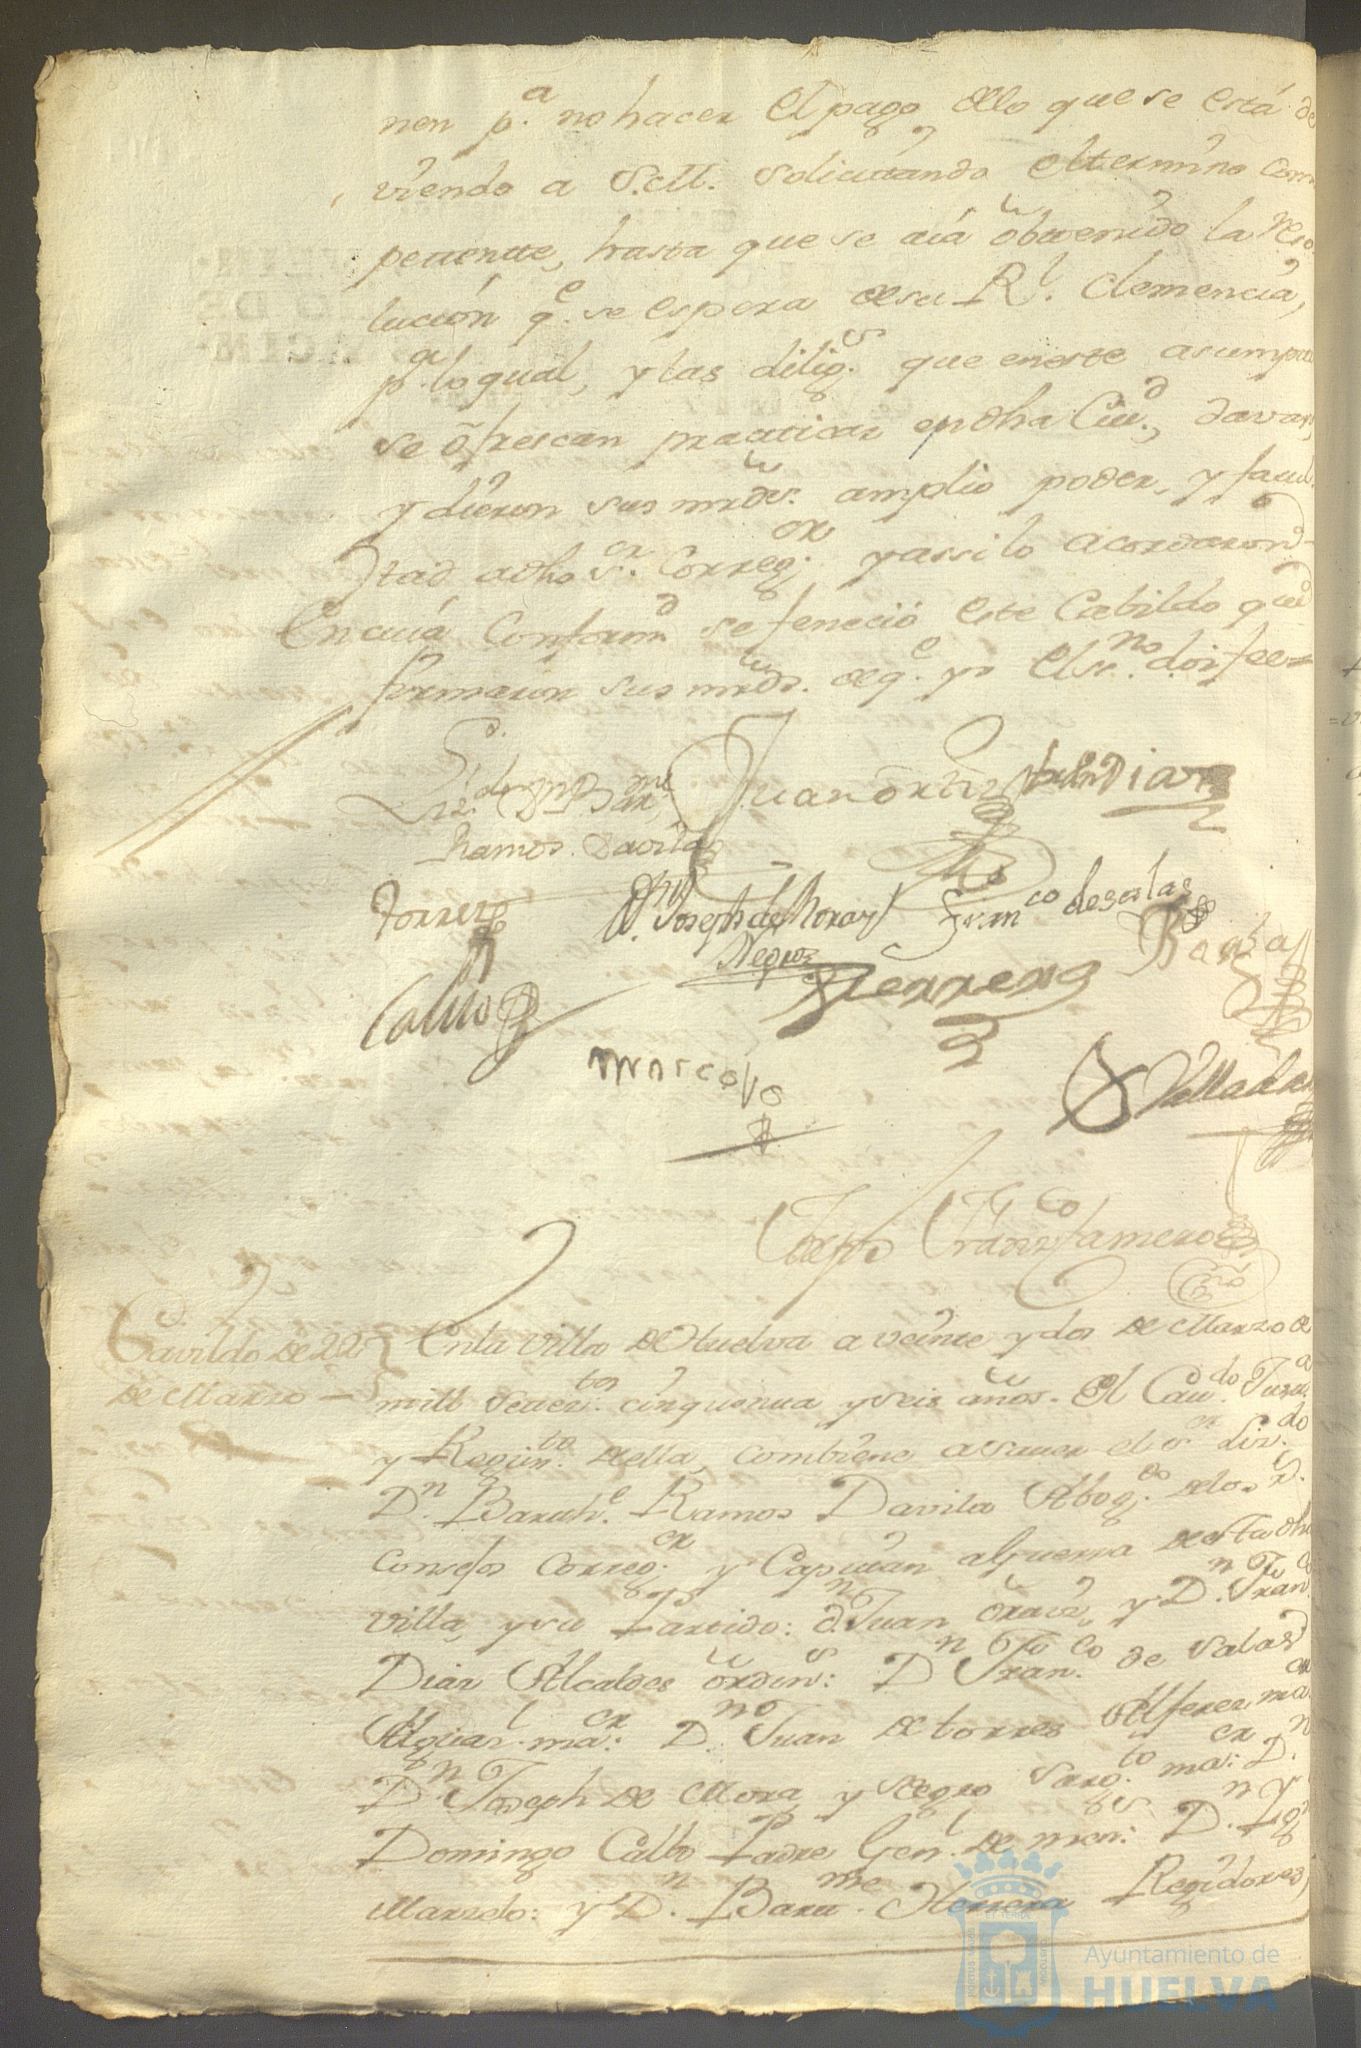 nen p.a no hacer el pago dello que se está de
viendo a S.M. solicitando el termino com
petente, hasta que se aia obtenido la reso
lución q.e se espera de su R.l Clemencia,
p.a lo qual, y las dilig.s que eneste asumpto
se ofrescan practicar en dha Ciu.d, davan,
y dieron sus mrds. amplio poder, y facul
tad adho S.r Correg.or y assi lo acordaron
En cuia Conform.d se feneció este Cabildo que
firmaron sus mrds. de q.e yo el Ss.no doi fee=
Liz.do Dn. Bar.me Juan Ortiz Fran Diaz
Ramos Davila
Torres Dn. Joseph de Mora y Fran.co de Salas
Negro Barza
Calbo Herrera
Marcelo Valladares
Joseph Fran.co Tamero
Ss.no
Cavildo de 22 En la Villa de Huelva a veinte y dos de Marzo de
de Marzo — mill setez.tos cinquenta y seis años. El Cau.do Jus.a
y Regim.to della, combiene a saver el s.r liz.do
D.n Barth.e Ramos Davila Abog.do delos R.s
Consejos Correg.or y Capitán aguerra de esta dha
villa, y su Partido: d.n Juan Ortiz, y D.n Fran.co
Diaz Alcaldes ordin.s: D.n Fran.co de Salas
Alguaz.l ma.or: D.n Juan de torres Alferez ma.or
D.n Joseph de Mora y Negro Sarg.to ma.or: D.n
Domingo Calbo Padre Gen.l de men.s: D.n
Marzelo: y D.n Bartt.me Herrera Regidores,
Ayuntamiento de
HUELVA